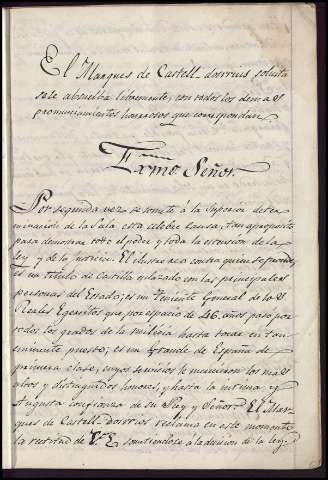 El Marques de Castell-dosrrius solicita
se le absuelba libremente, con todos los demas
pronunciamientos honrosos que correspondan
Exmo. Señor.
Por segunda vez se somete á la Superior deter-
minacion de la Sala esta célebre causa, tan aproposito
para demostrar todo el poder, y toda la estension de la
ley y de la justicia. El ilustre reo contra quien se procede,
es un titulo de Castilla enlazado con las principales
personas del Estado; es un Teniente General de los
Reales Egercitos que por espacio de 46. años paso por
todos los grados de la milicia hasta tocar en tan
eminente puesto; es un Grande de España de
primera clase, cuyos servicios le reunieron los mas
altos y distinguidos honores, y hasta la intima y
Augusta confianza de su Rey y Señor. El Mar-
ques de Castell-dosrrius reclama en este momento
la rectitud de V.E. sometiendose á la decision de la ley.